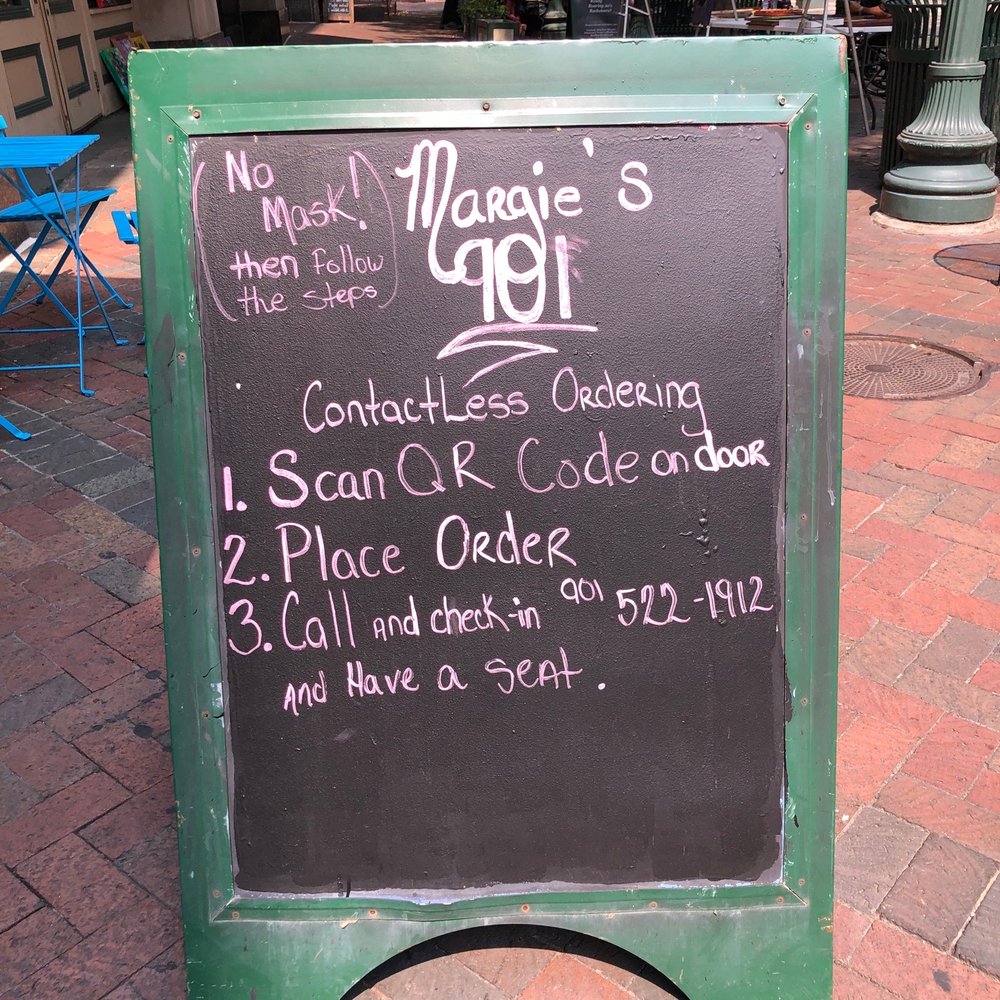 No
Mask!
then Follow
the Steps
Margie's
901
ContactLess Ordering
1. Scan QR Code on dooR
2. Place OrdeR
3. Call and check-in 901 522-1912
and Have a Seat.